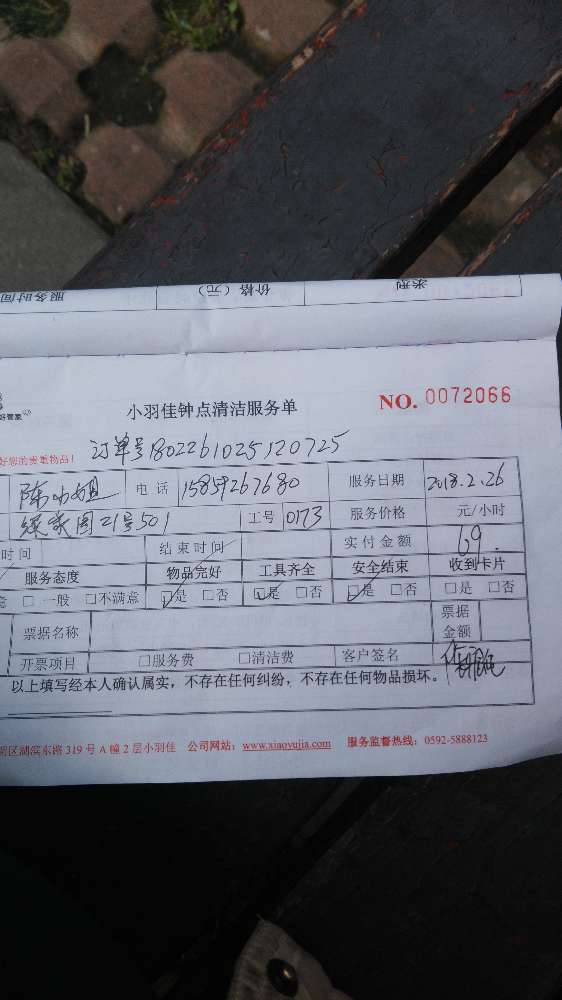 服务时间 价格（元） 类型
好管家
小羽佳钟点清洁服务单 NO. 0072066
好您的贵重物品！ 订单号180226102512072​5
陈小姐 电话 15859267680 服务日期 2018.2.26
21号501 工号 0173 服务价格 元/小时
时间 结束时间 实付金额 69.
服务态度 物品完好 工具齐全 安全结束 收到卡片
意 □一般 □不满意 ☑是 □否 ☑是 □否 ☑是 □否 □是 □否
票据名称 票据金额
开票项目 □服务费 □清洁费 客户签名
以上填写经本人确认属实，不存在任何纠纷，不存在任何物品损坏。
明区湖滨东路319号A幢2层小羽佳 公司网站：www.xiaoyujia.com 服务监督热线：0592-5888123